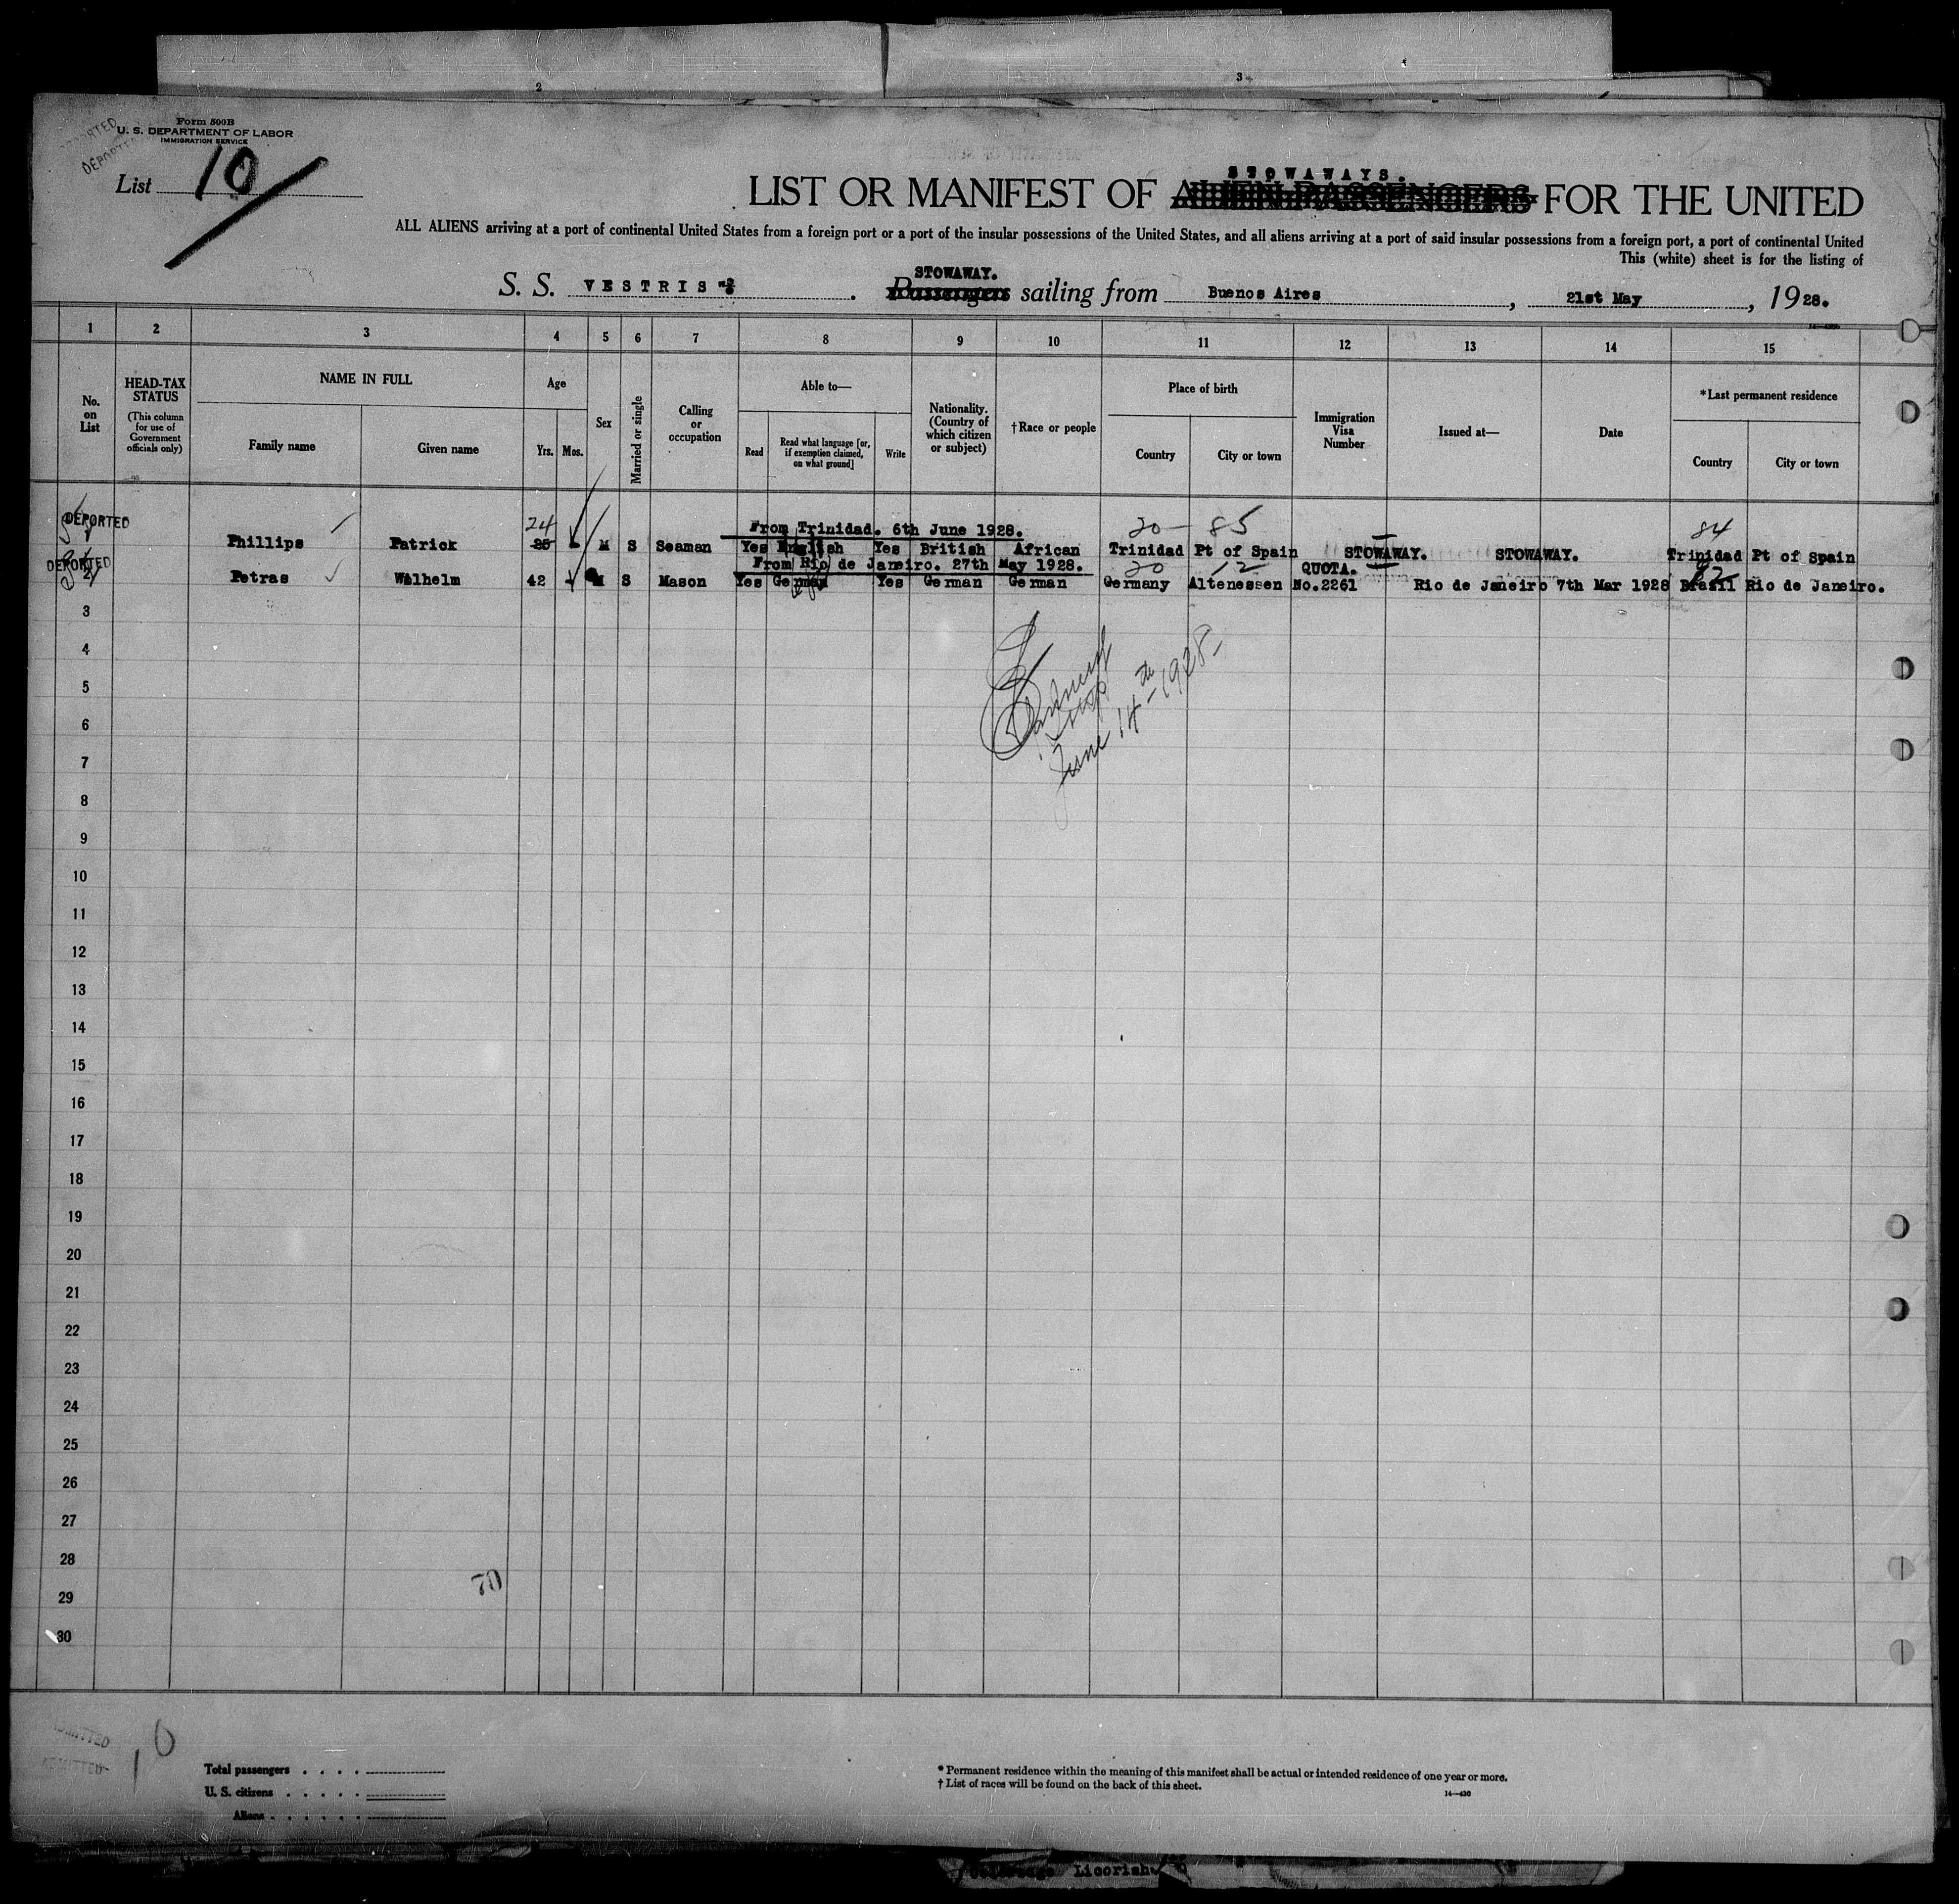 2
3
Form 500B
U. S. DEPARTMENT OF LABOR
IMMIGRATION SERVICE
DEPORTED
DEPORTED
List 10
STOWAWAYS.
LIST OR MANIFEST OF ALIEN PASSENGERS FOR THE UNITED
ALL ALIENS arriving at a port of continental United States from a foreign port or a port of the insular possessions of the United States, and all aliens arriving at a port of said insular possessions from a foreign port, a port of continental United
This (white) sheet is for the listing of
STOWAWAY.
S. S. VESTRIS Passengers sailing from Buenos Aires, 21st May, 1928.
1 2 3 4 5 6 7 8 9 10 11 12 13 14 15
No. on List
HEAD-TAX STATUS
(This column for use of Government officials only)
NAME IN FULL
Family name Given name
Age
Yrs. Mos.
Sex
Married or single
Calling or occupation
Able to—
Read
Read what language [or, if exemption claimed, on what ground]
Write
Nationality. (Country of which citizen or subject)
†Race or people
Place of birth
Country City or town
Immigration Visa Number
Issued at—
Date
*Last permanent residence
Country City or town
DEPORTED
24 From Trinidad. 6th June 1928. 20 85 84
Phillips Patrick 25 M S Seaman Yes English Yes British African Trinidad Pt of Spain STOWAWAY. STOWAWAY. Trinidad Pt of Spain
DEPORTED
From Rio de Janeiro. 27th May 1928. 20 12 QUOTA. 82
2 Petras Wilhelm 42 M S Mason Yes German Yes German German Germany Altenessen No.2261 Rio de Janeiro 7th Mar 1928 Brasil Rio de Janeiro.
3
4
5
6
7
8
9
10
11
12
13
14
15
16
17
18
19
20
21
22
23
24
25
26
27
28
29
30
June 14th-1928
70
ADMITTED
ADMITTED
10
Total passengers . . . .
U. S. citizens . . . . .
Aliens . . . . . .
* Permanent residence within the meaning of this manifest shall be actual or intended residence of one year or more.
† List of races will be found on the back of this sheet.
14—430
Licorish